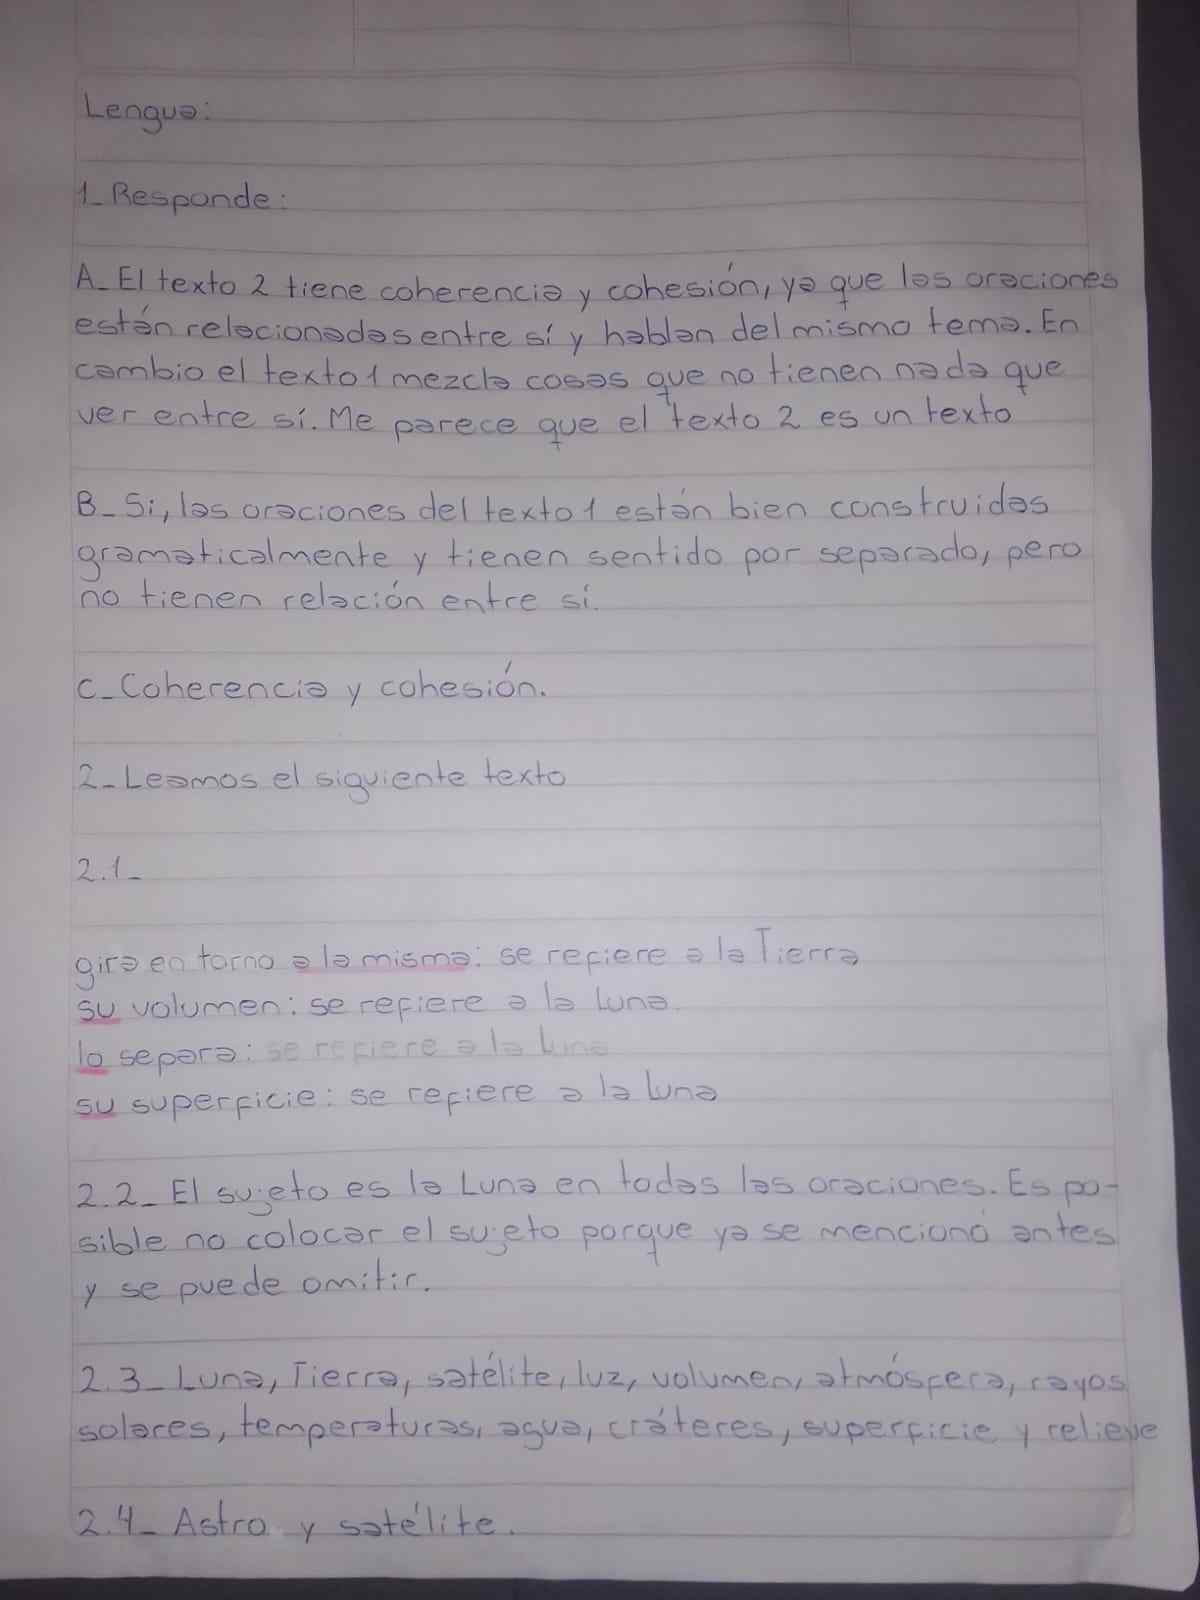 Lengua:
1_ Responde:
A_ El texto 2 tiene coherencia y cohesión, ya que las oraciones
están relacionadas entre sí y hablan del mismo tema. En
cambio el texto 1 mezcla cosas que no tienen nada que
ver entre sí. Me parece que el texto 2 es un texto
B_ Si, las oraciones del texto 1 están bien construidas
gramaticalmente y tienen sentido por separado, pero
no tienen relación entre sí.
C_ Coherencia y cohesión.
2_ Leamos el siguiente texto
2.1_
gira en torno a la misma: se refiere a la Tierra
su volumen: se refiere a la Luna.
la separa: se refiere a la Luna
su superficie: se refiere a la Luna
2.2_ El sujeto es la Luna en todas las oraciones. Es po-
sible no colocar el sujeto porque ya se mencionó antes
y se puede omitir.
2.3_ Luna, Tierra, satélite, luz, volumen, atmósfera, rayos
solares, temperaturas, agua, cráteres, superficie y relieve
2.4_ Astro y satélite.